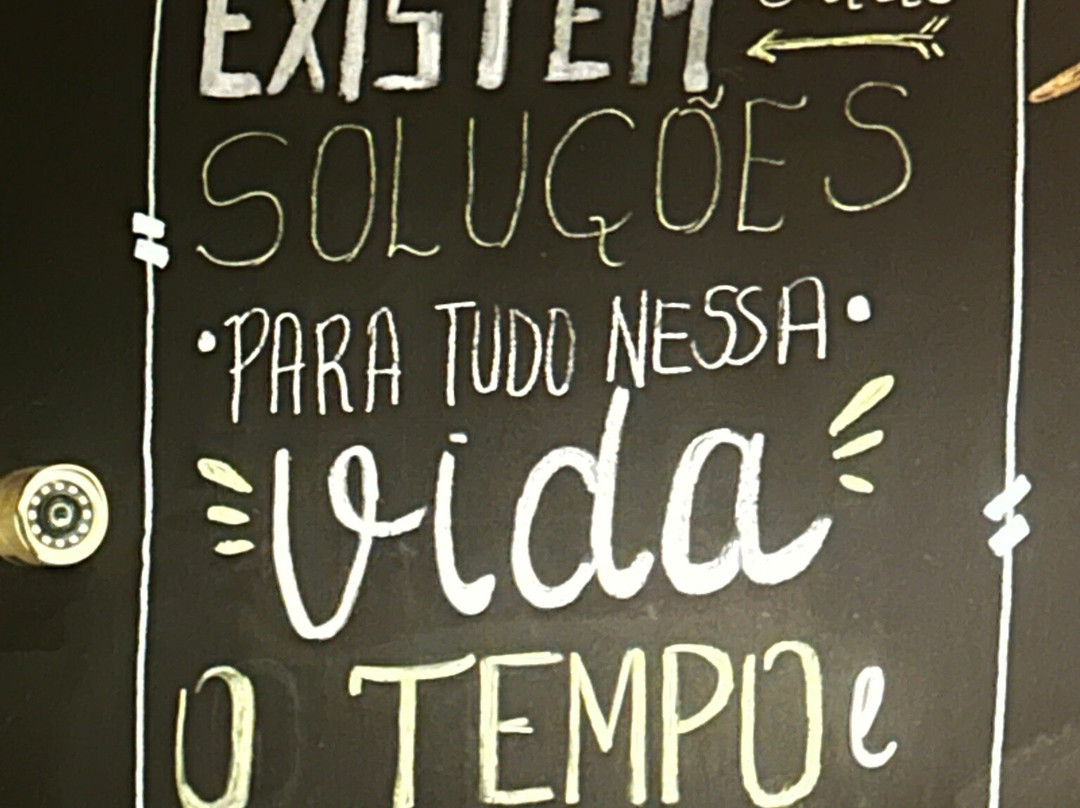 EXISTEM
SOLUÇÕES
• PARA TUDO NESSA •
vida
O TEMPO e